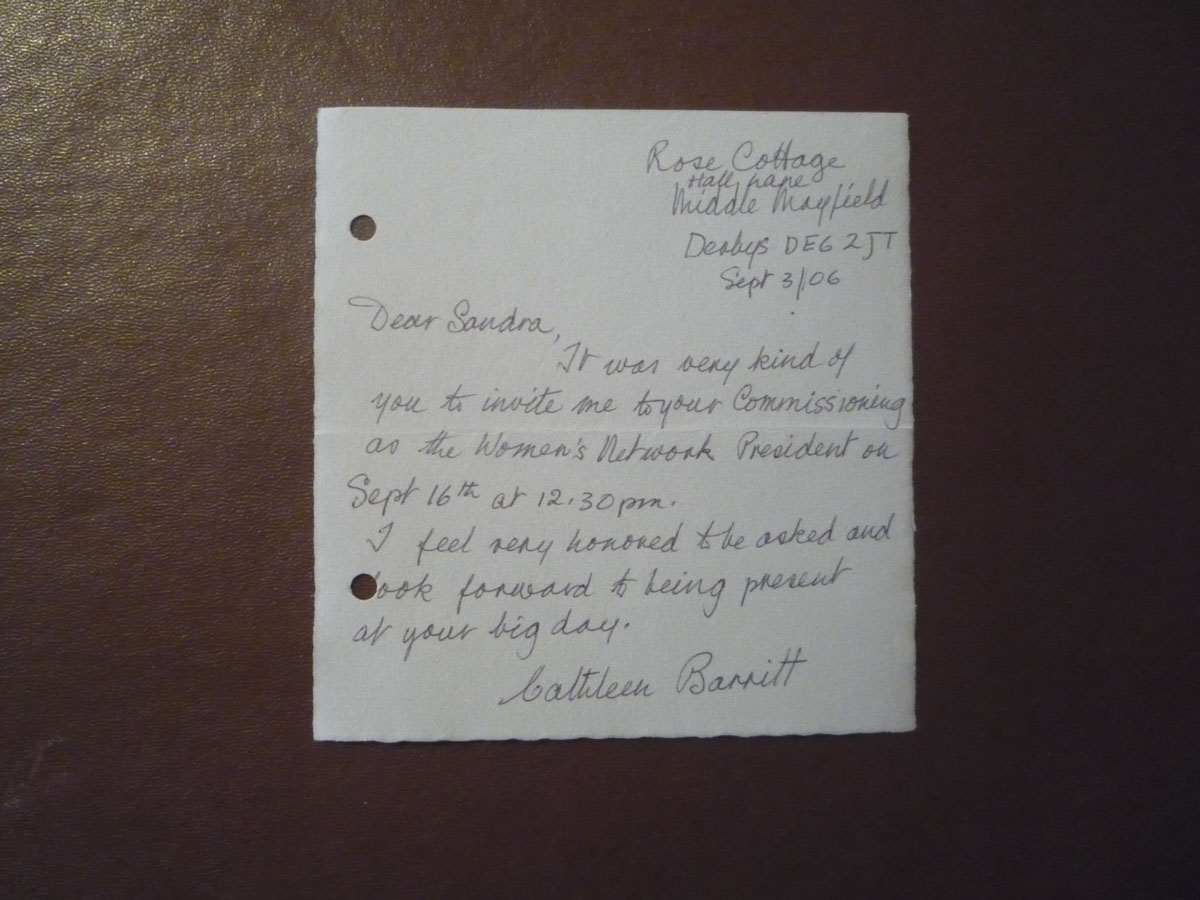 Rose Cottage
Hall Lane
Middle Mayfield
Derbys DE6 2JT
Sept 3/06
Dear Sandra,
It was very kind of
you to invite me to your Commissioning
as the Women's Network President on
Sept 16th at 12.30pm.
I feel very honored to be asked and
look forward to being present
at your big day.
Cathleen Barritt